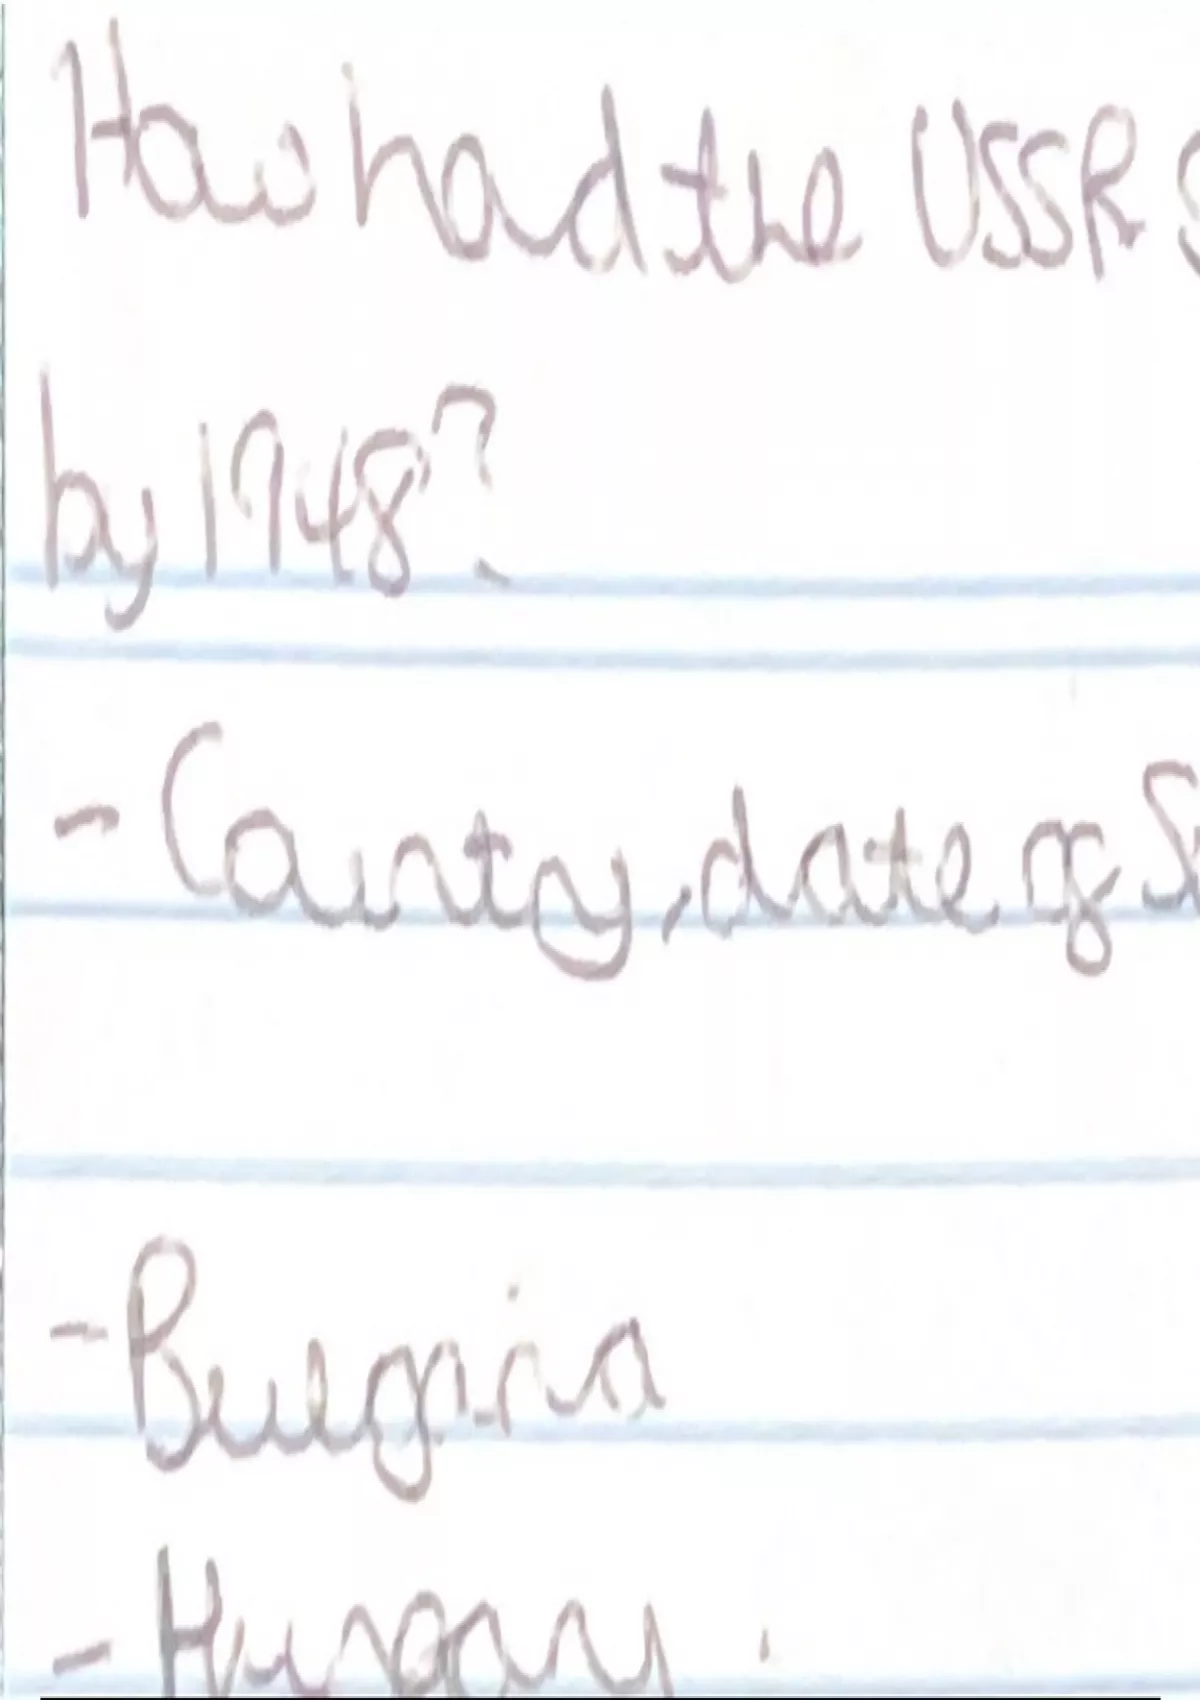 How had the USSR S
by 1948?
- Country, date of S
- Bulgaria
- Hungary.